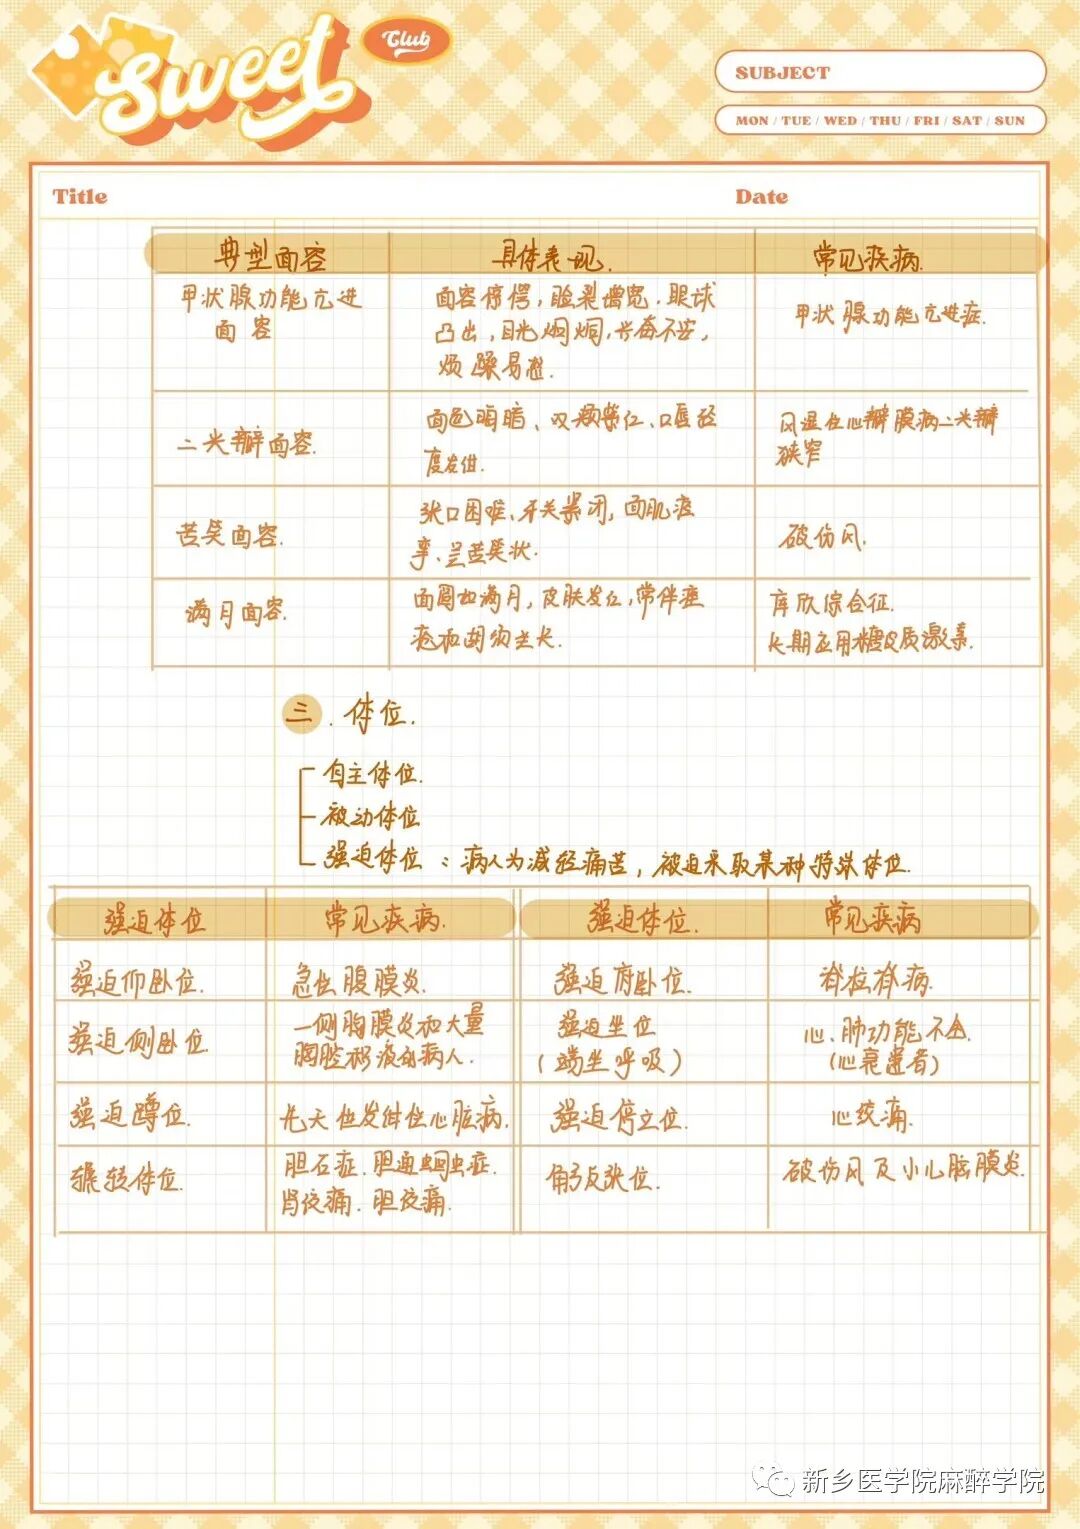 Sweet Club
SUBJECT
MON / TUE / WED / THU / FRI / SAT / SUN
Title
Date
典型面容
具体表现.
常见疾病.
甲状腺功能亢进
面容
面容惊愕,睑裂增宽.眼球
凸出,目光炯炯,兴奋不安,
烦躁易怒.
甲状腺功能亢进症.
二尖瓣面容.
面色晦暗、双颊紫红、口唇轻
度发绀.
风湿性心瓣膜病二尖瓣
狭窄
苦笑面容.
张口困难、牙关紧闭,面肌痉
挛、呈苦笑状.
破伤风.
满月面容.
面圆如满月,皮肤发红,常伴痤
疮和胡须生长.
库欣综合征.
长期应用糖皮质激素.
三.体位.
自主体位.
被动体位
强迫体位:病人为减轻痛苦,被迫采取某种特殊体位.
强迫体位
常见疾病.
强迫体位.
常见疾病
强迫仰卧位.
急性腹膜炎.
强迫俯卧位.
脊柱疾病.
强迫侧卧位.
一侧胸膜炎和大量
胸腔积液的病人.
强迫坐位
(端坐呼吸)
心、肺功能不全.
(心衰患者)
强迫蹲位.
先天性发绀性心脏病.
强迫停立位.
心绞痛.
辗转体位.
胆石症.胆道蛔虫症.
肾绞痛.胆绞痛.
角弓反张位.
破伤风及小儿脑膜炎.
新乡医学院麻醉学院